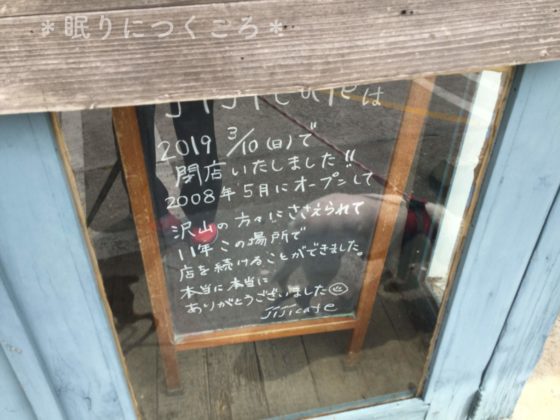 ＊眠りにつくころ＊
jijicafeは
2019 3/10(日)で
閉店いたしました!!
2008年5月にオープンして
沢山の方々にささえられて
11年この場所で
店を続けることができました。
本当に本当に
ありがとうございました
jijicafe